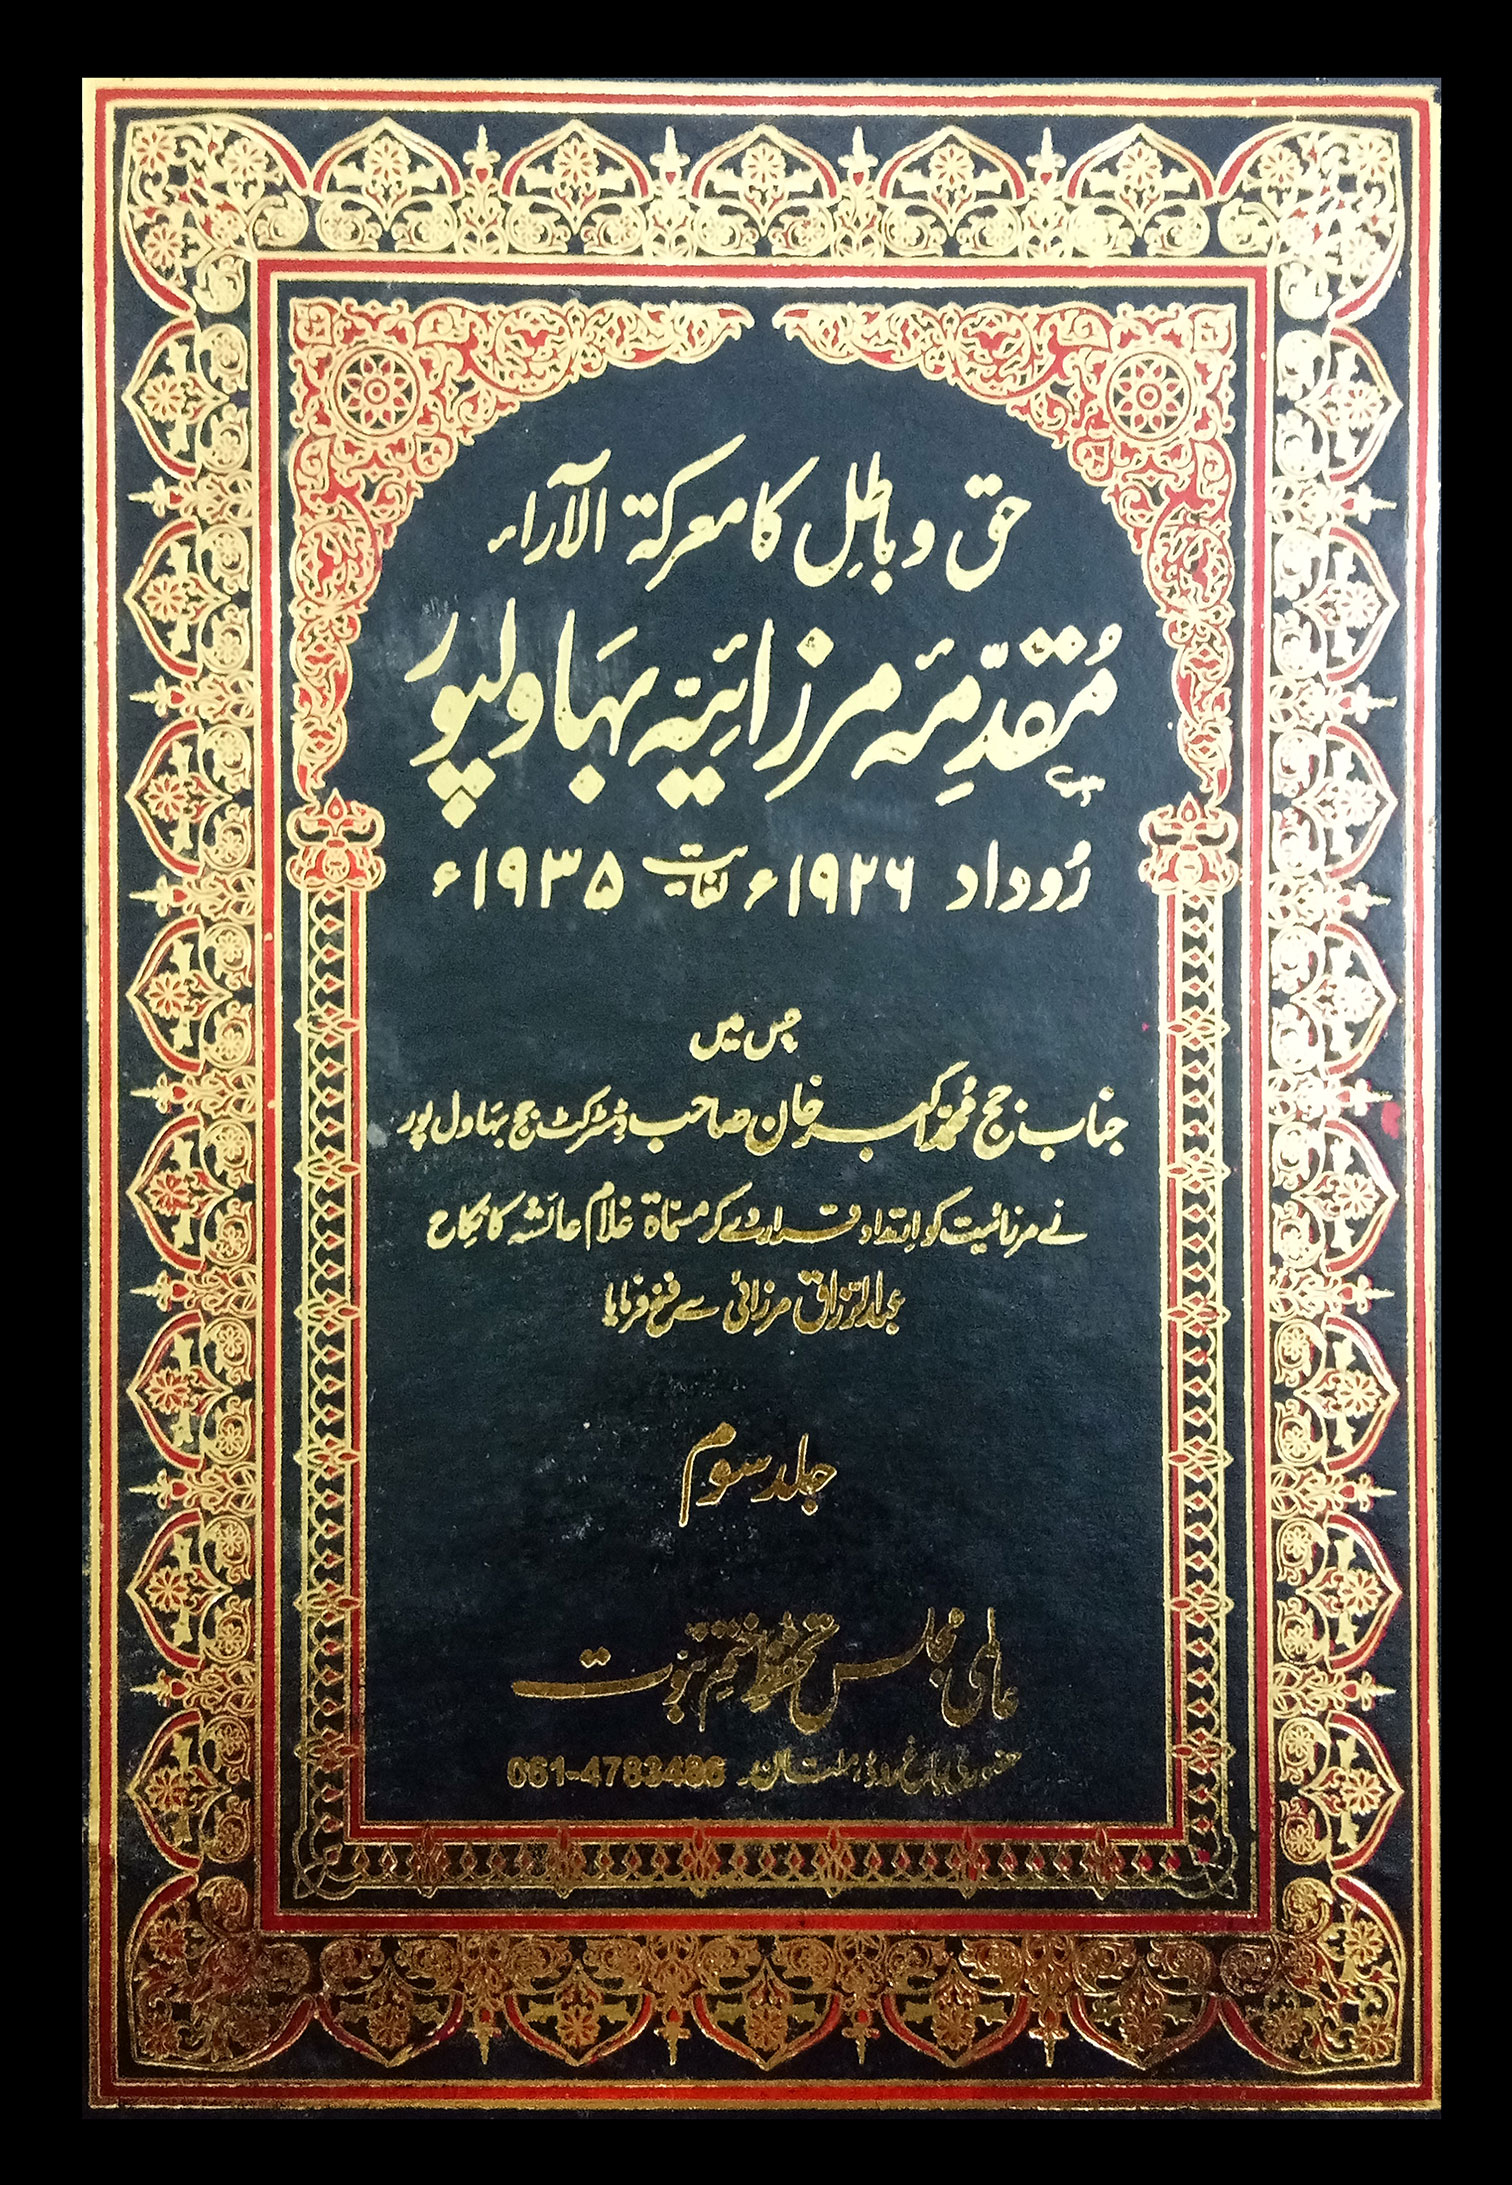 حق و باطل کا معرکۃ الآراء
مُقدّمِئہ مرزائیّہ بہاولپور
رُوداد ۱۹۲۶ء لغایت ۱۹۳۵ء
جس میں
جناب جج محمد اکبر خان صاحب ڈسٹرکٹ جج بہاول پور
نے مرزائیت کو ارتداد قرار دے کر مسمّاۃ غلام عائشہ کا نکاح
عبدالرزاق مرزائی سے فسخ فرمایا
جلد سوم
عالمی مجلس تحفظ ختم نبوت
حضوری باغ روڈ، ملتان۔ 061-4783486